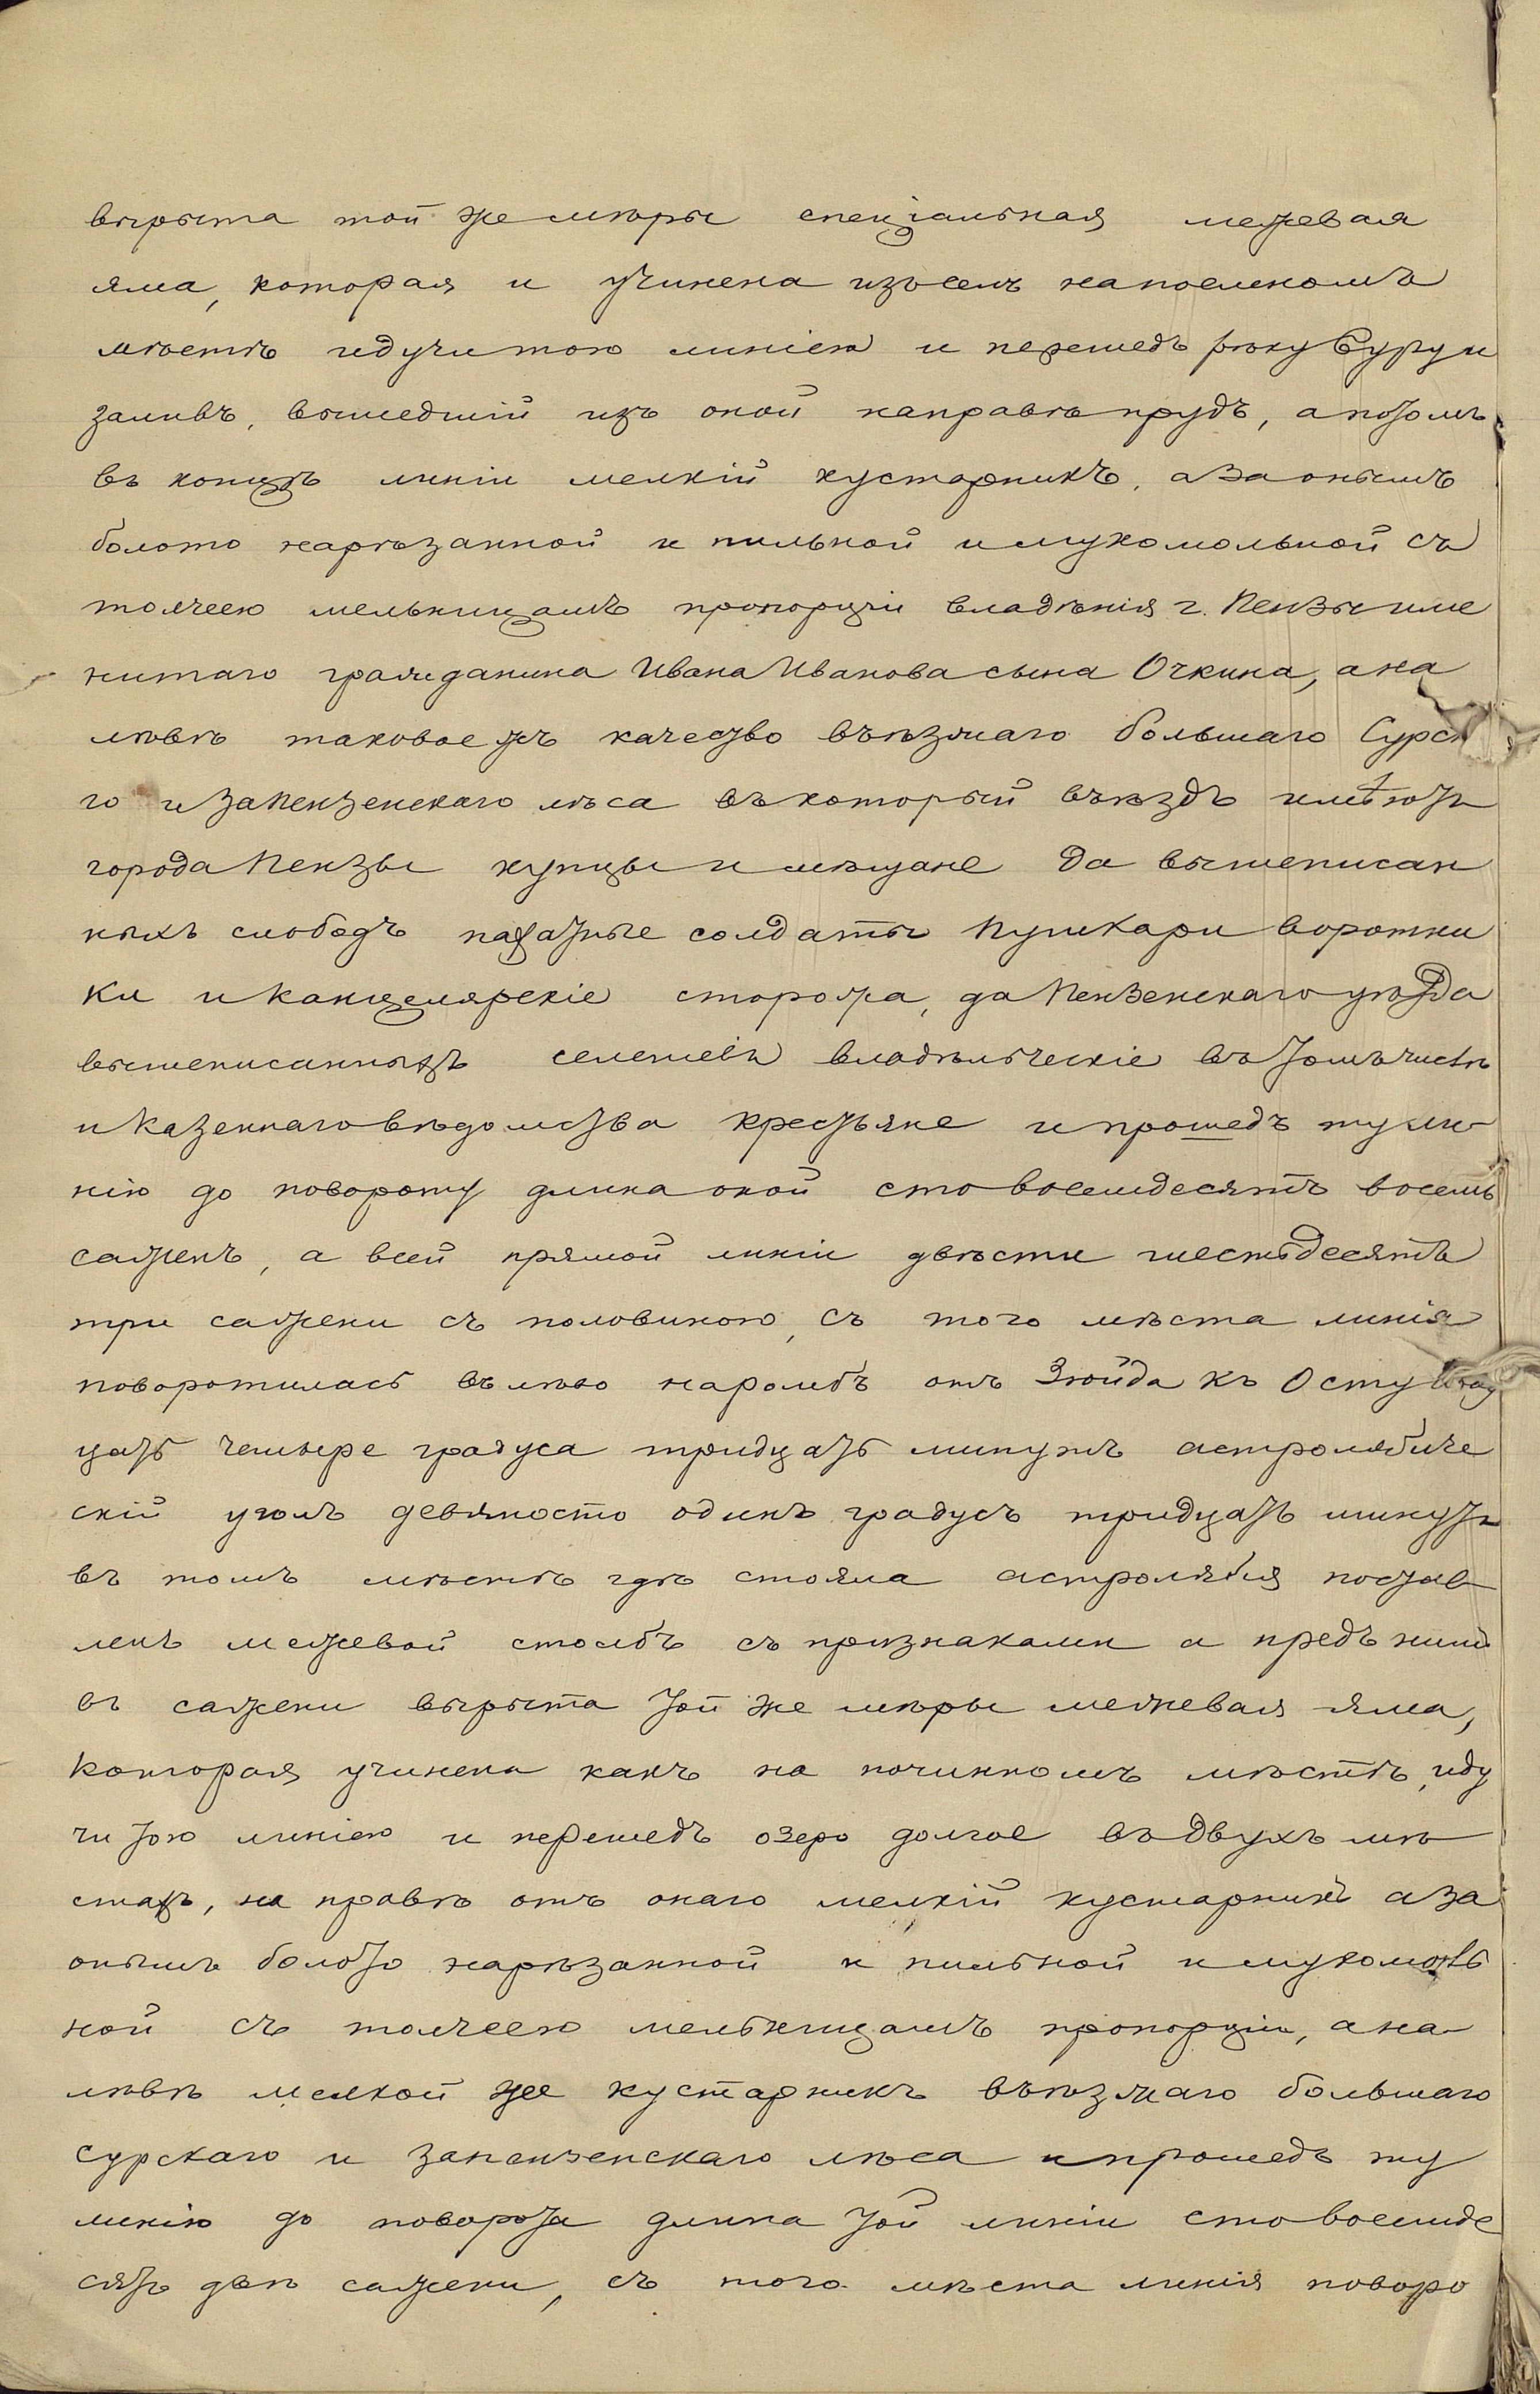 вырыта той же мѣры спеціальная межевая
яма, которая и учинена изъ семъ напоемномъ
мѣстѣ идучи тою линіею и перешедъ рѣку Суру и
заливъ, вышедшій изъ оной направѣ прудъ, а потомъ
въ концѣ линіи мелкій кустарникъ, а за онымъ
болото нарѣзанной к пильной и мукомольной съ
толчеею мельницамъ пропорціи владѣнія г. Пензы име
нитаго гражданина Ивана Иванова сына Очкина, а на
лѣвѣ таковое жъ качество въѣзжаго большаго Сурск
го и Запензенскаго лѣса въ который въѣздъ имѣютъ
города Пензы купцы и мѣщане да вышеписан
ныхъ слободъ пахатные солдаты Пушкари воротни
ки и Канцелярскіе сторожа, да Пензенскаго уѣзда
вышеписанныхъ селеніевъ владѣльческіе въ томъ числѣ
и Казеннаго вѣдомства крестьяне и прошедъ ту ли
нію до повороту длина оной сто восемдесятъ восемь
саженъ, а всей прямой линіи двѣсти шестьдесятъ
три сажени съ половиною, съ того мѣста линія
поворотилась въ лѣво на ромбъ отъ Зюйда къ Осту
цать четыре градуса тридцать минутъ астролябиче
скій уголъ девяносто одинъ градусъ тридцать минутъ
въ томъ мѣстѣ гдѣ стояла астролябія постав
ленъ межевой столбъ съ признаками а предъ нимъ
въ сажени вырыта той же мѣры межевая яма,
которая учинена какъ на починномъ мѣстѣ, иду
чи тою линіею и перешедъ озеро долгое въ двухъ мѣ
стахъ, на правѣ отъ онаго мелкій кустарникъ а за
онымъ болото нарѣзанной к пильной и мукомоль
ной съ толчеею мельницамъ пропорціи, а на
лѣвѣ мелкой же кустарникъ въѣзжаго большаго
сурскаго и запензенскаго лѣса и прошедъ ту
линію до поворота длина той линіи сто восемде
сятъ двѣ сажени, съ того мѣста линія поворо